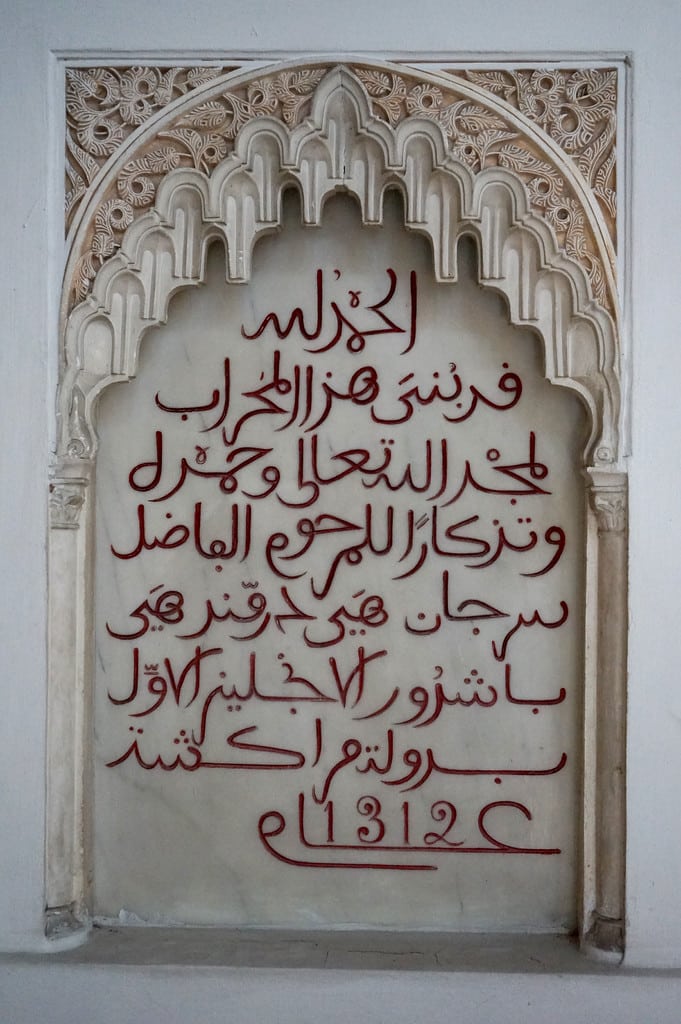 الحمد لله
قد بُنىَ هذا المحراب
لمجْد الله تعالى وحمد له
وتذكارًا للمرحوم الفاضل
سر جان هَي درمّند هَي
باشدُور الانجليز الاوّل
بدولة مراكشة
عام 1312